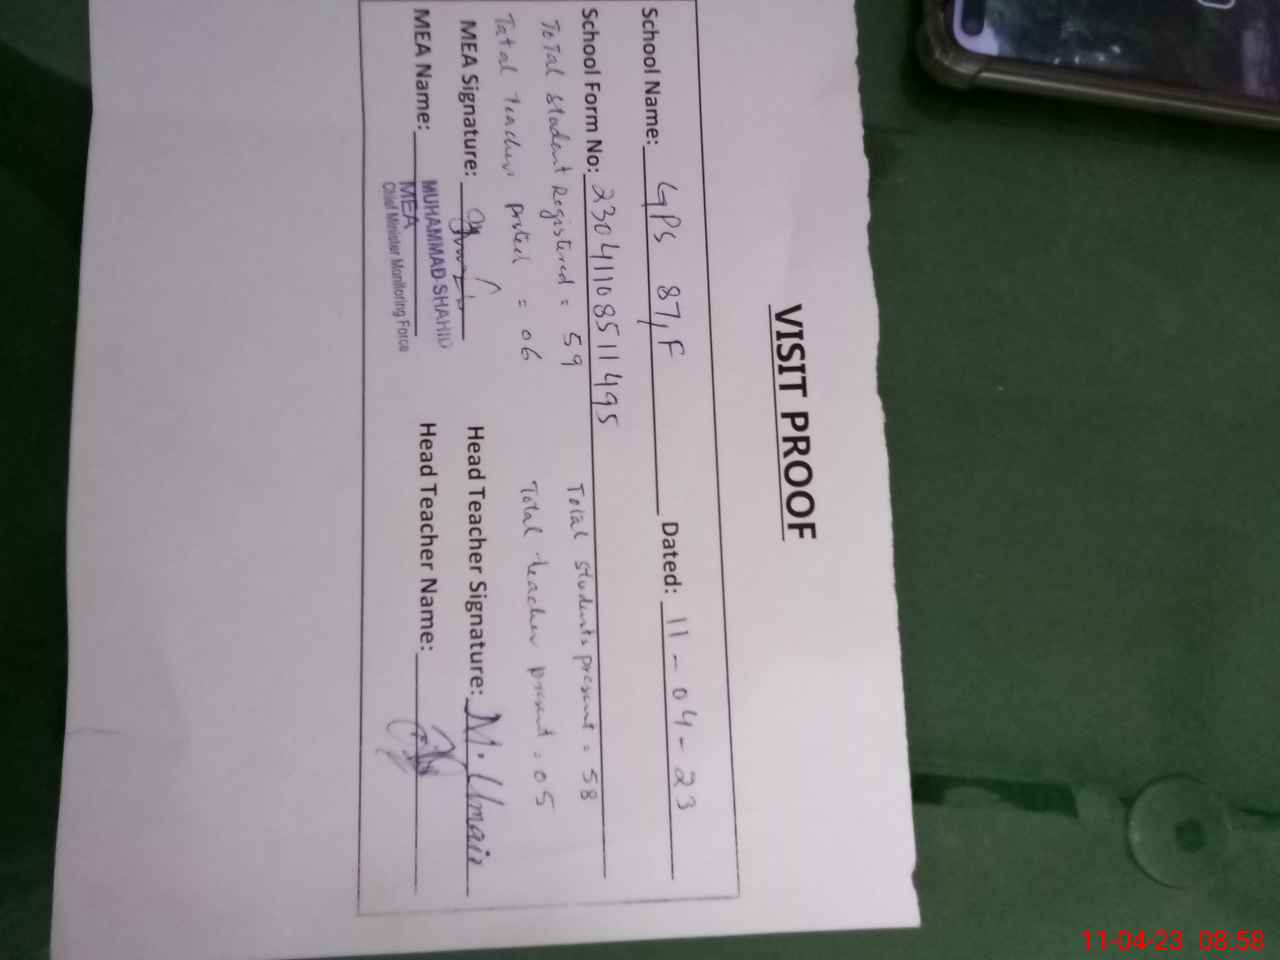 VISIT PROOF
School Name: GPS 87/F Dated: 11-04-23
School Form No: 23041108511495
Total student Registered = 59 Total students present = 58
Total teacher posted = 06 Total teacher present = 05
MEA Signature: Head Teacher Signature: M. Umair
MEA Name: MUHAMMAD SHAHID Head Teacher Name:
MEA
Chief Minister Monitoring Force
11-04-23 08:58